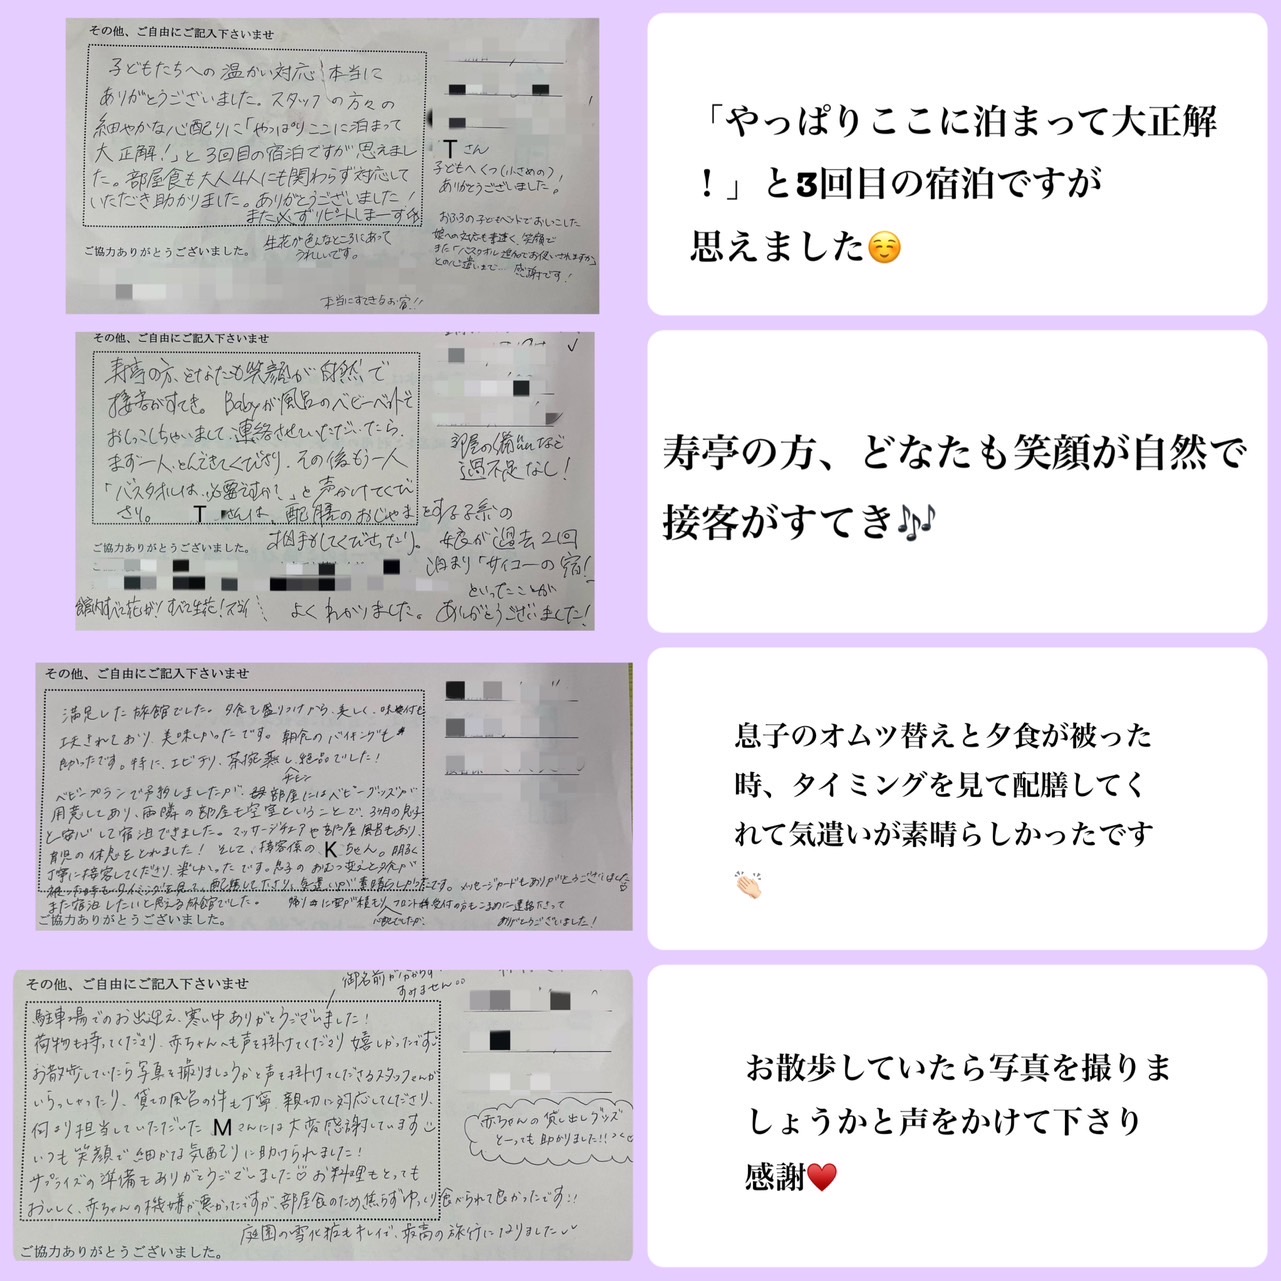 その他、ご自由にご記入下さいませ
子どもたちへの温かい対応!本当に
ありがとうございました。スタッフの方々の
細やかな心配りに「やっぱりここに泊まって
大正解!」と3回目の宿泊ですが思えまし
た。部屋食も大人4人にも関わらず対応して
いただき助かりました。ありがとうございました!
また必ずリピートしまーす
ご協力ありがとうございました。
生花が色んなところにあって
うれしいです。
Tさん
子どもへくつ(小さめの)!
ありがとうございました。
おふろの子どもベッドでおしっこした
娘への対応も素速く、笑顔で
また「バスタオル追加でお使いされますか」
との心遣いまで 感謝です!
本当にすてきなお宿!!
「やっぱりここに泊まって大正解
!」と3回目の宿泊ですが
思えました☺️
その他、ご自由にご記入下さいませ
寿亭の方、どなたも笑顔が自然で
接客がすてき。Babyが風呂のベビーベットで
おしっこしちゃいまして、連絡させていただいたら、
まず一人、とんできてくださり、その後もう一人
「バスタオルは、必要ですか?」と声かけてくだ
さり。 Tさんは、配膳のおじゃまをする子系の
相手もしてくださったり。
ご協力ありがとうございました。
部屋の備品など
過不足なし!
娘が過去2回
泊まり「サイコーの宿!
といってたことが
よくわかりました。ありがとうございました!
館内すべて花が!すべて生花!スゴイ!
寿亭の方、どなたも笑顔が自然で
接客がすてき🎶
その他、ご自由にご記入下さいませ
満足した旅館でした。夕食も盛りつけから、美しく、味付けも
工夫されており、美味しかったです。朝食のバイキングも
助かったです。特に、エビチリ、茶碗蒸し、絶品でした!
ベビープランで予約しましたが、部屋にはベビーグッズが
用意してあり、両隣の部屋も空室ということで、3ヶ月の息子
と安心して宿泊できました。マッサージチェアや部屋風呂もあり、
育児の休息をとれました!そして、接客係のKちゃん。明るく
丁寧に接客してくださり、楽しかったです。息子のおむつ変えと夕食が
被った時も、タイミングを見て、配膳してくださり、気遣いが素晴らしかったです。メッセージカードもありがとうございました
また宿泊したいと思える旅館でした。
帰り時に雪が積もり、フロント様受付の方もこまめに連絡下さって
心配でしたが、
ありがとうございました!
ご協力ありがとうございました。
息子のオムツ替えと夕食が被った
時、タイミングを見て配膳してく
れて気遣いが素晴らしかったです
👏🏻
その他、ご自由にご記入下さいませ
御名前が分からず
すみません。。
駐車場でのお出迎え、寒い中ありがとうございました!
荷物も持ってくださり、赤ちゃんへも声を掛けてくださり嬉しかったです
お散歩していたら写真を撮りましょうかと声を掛けてくださるスタッフさんが
いらっしゃったり、貸切風呂の件も丁寧、親切に対応してくださり、
何より担当していただいた Mさんには大変感謝しています
いつも笑顔で細かな気配りに助けられました!
サプライズの準備もありがとうございました♡お料理もとっても
おいしく、赤ちゃんの機嫌が悪かったですが、部屋食のため焦らずゆっくり食べられて良かったです!!
庭園の雪化粧もキレイで、最高の旅行になりました
ご協力ありがとうございました。
赤ちゃんの貸し出しグッズ
とっても助かりました!!
お散歩していたら写真を撮りま
しょうかと声をかけて下さり
感謝♥️